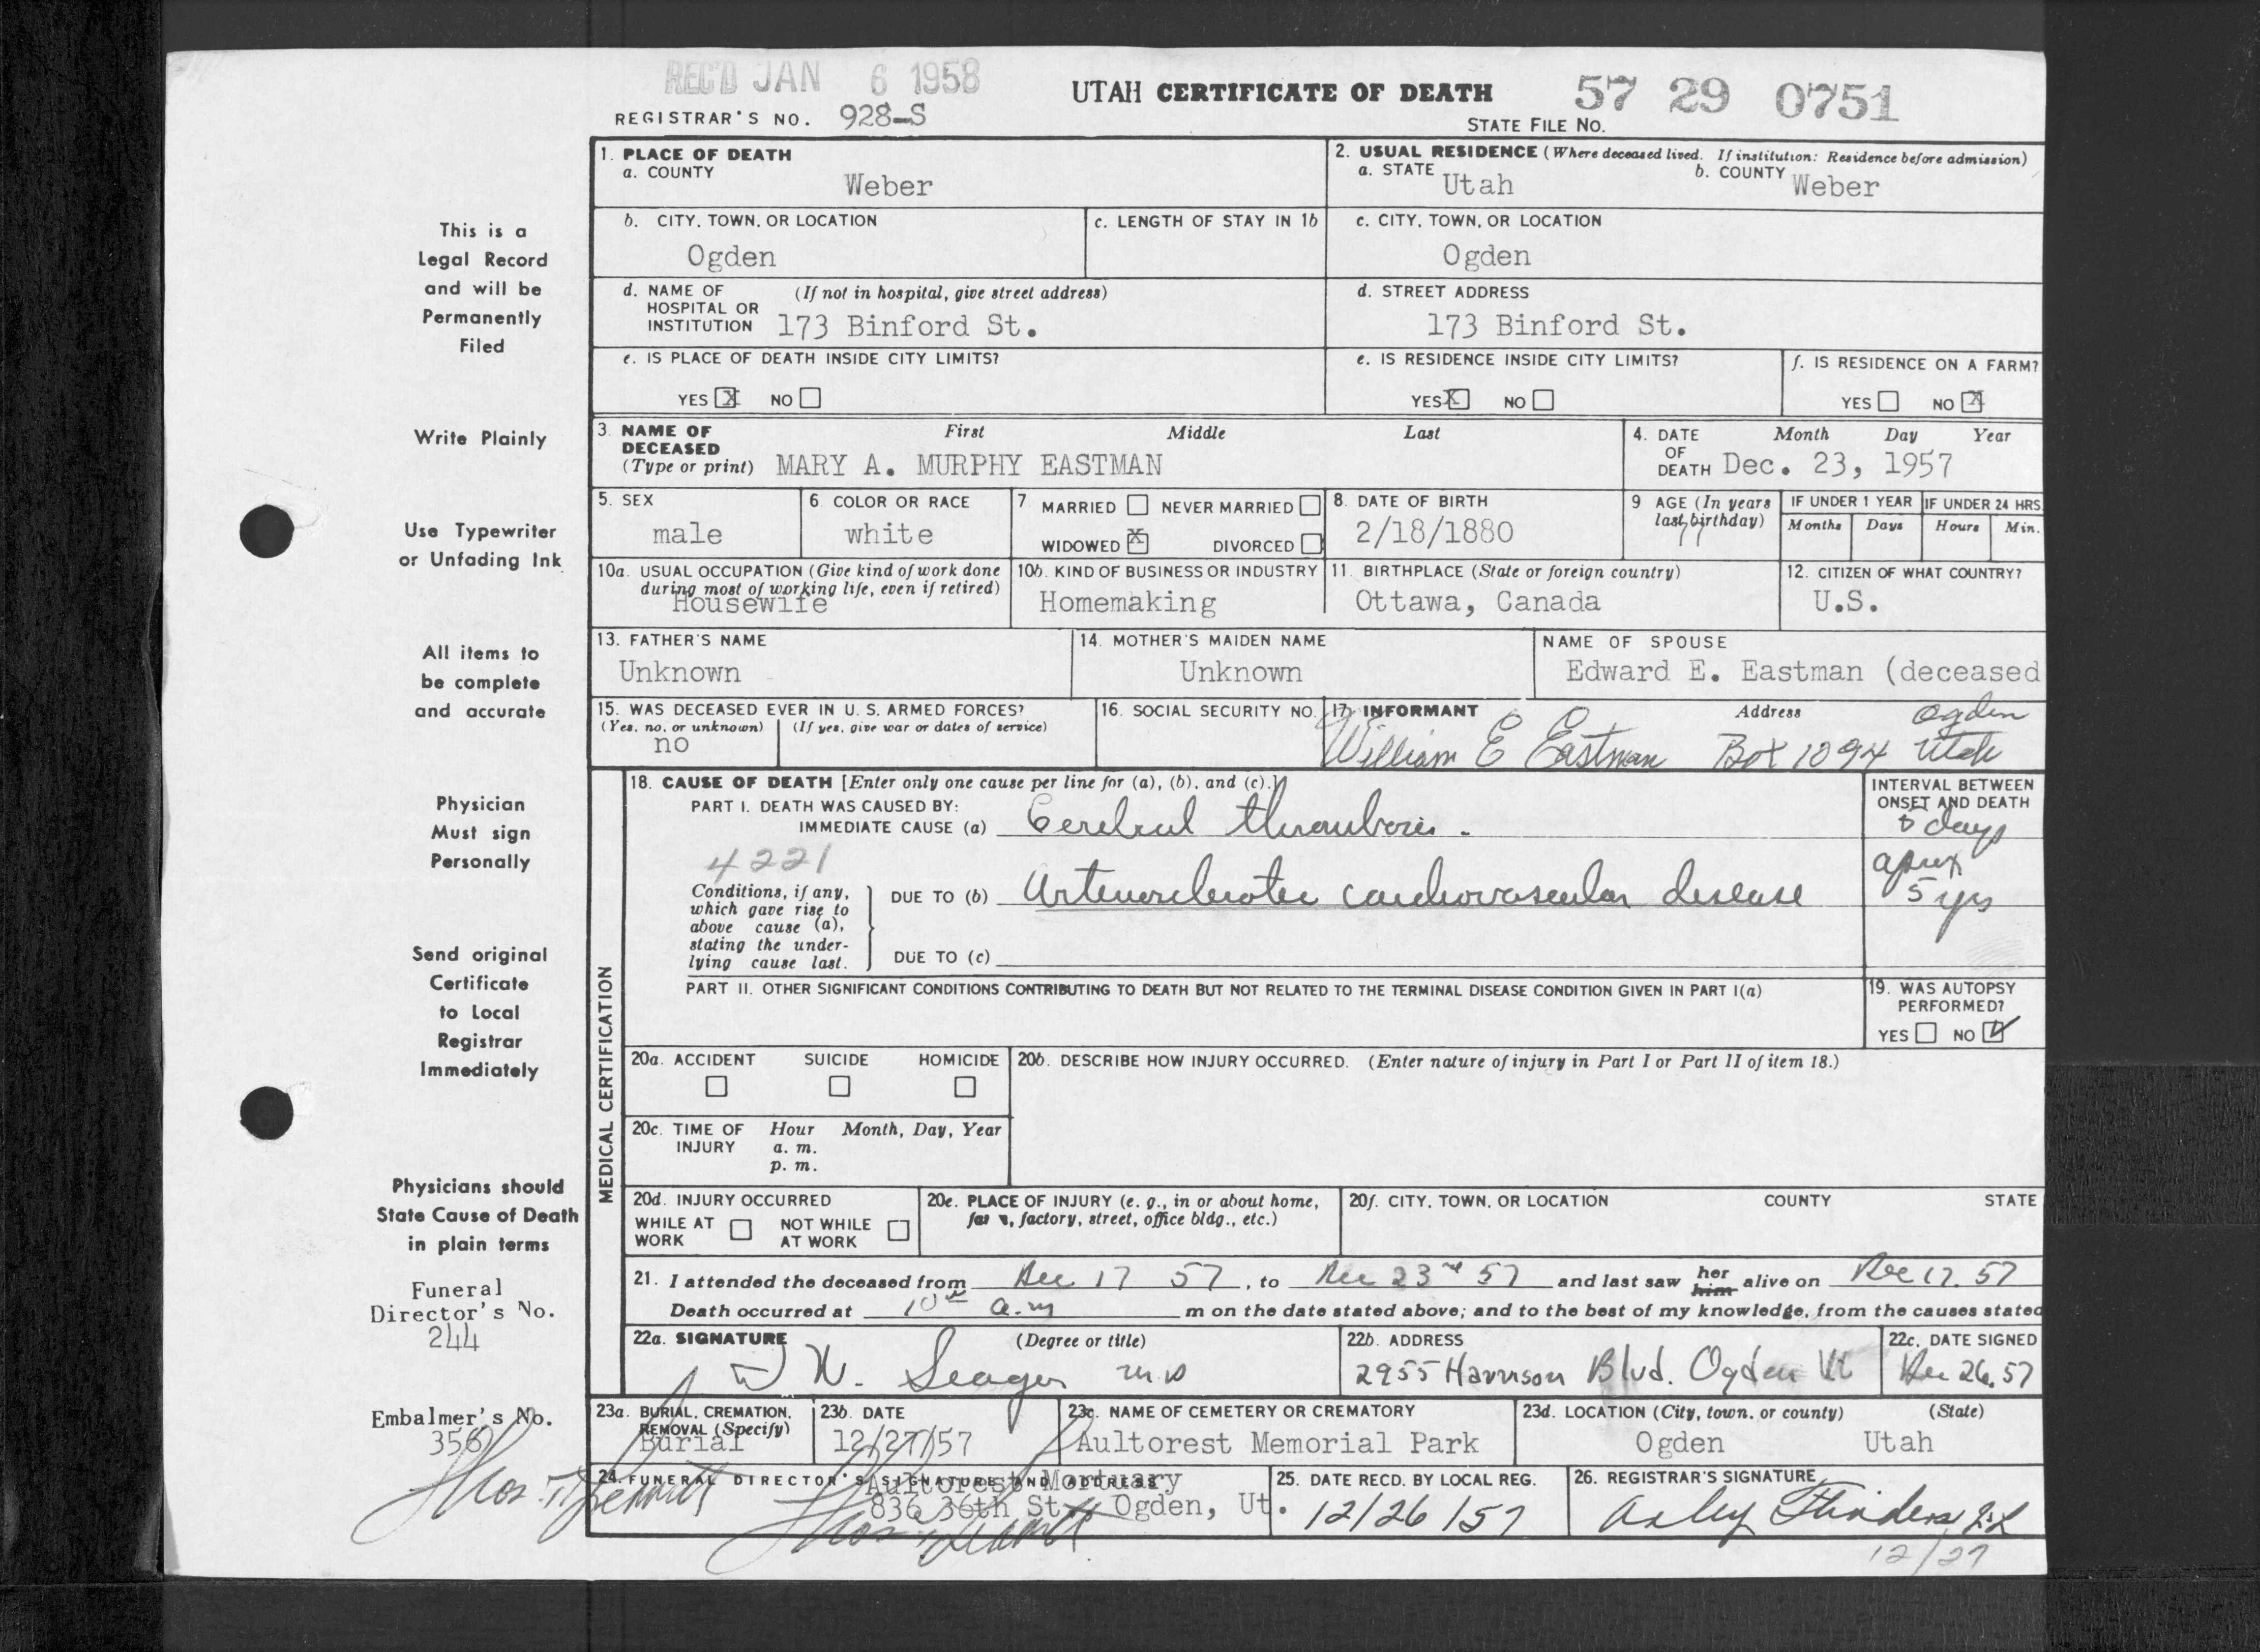 REC'D JAN 6 1958
UTAH CERTIFICATE OF DEATH
57 29 0751
REGISTRAR'S NO. 928-S
STATE FILE NO.
1. PLACE OF DEATH
a. COUNTY
Weber
2. USUAL RESIDENCE (Where deceased lived. If institution: Residence before admission)
a. STATE Utah
b. COUNTY Weber
b. CITY, TOWN, OR LOCATION
Ogden
c. LENGTH OF STAY IN 1b
c. CITY, TOWN, OR LOCATION
Ogden
d. NAME OF HOSPITAL OR INSTITUTION (If not in hospital, give street address)
173 Binford St.
d. STREET ADDRESS
173 Binford St.
e. IS PLACE OF DEATH INSIDE CITY LIMITS?
YES X NO
e. IS RESIDENCE INSIDE CITY LIMITS?
YES X NO
f. IS RESIDENCE ON A FARM?
YES NO X
3. NAME OF DECEASED (Type or print)
First Middle Last
MARY A. MURPHY EASTMAN
4. DATE OF DEATH
Month Day Year
Dec. 23, 1957
5. SEX
male
6. COLOR OR RACE
white
7 MARRIED NEVER MARRIED
WIDOWED X DIVORCED
8. DATE OF BIRTH
2/18/1880
9 AGE (In years last birthday)
77
IF UNDER 1 YEAR
Months Days
IF UNDER 24 HRS.
Hours Min.
10a. USUAL OCCUPATION (Give kind of work done during most of working life, even if retired)
Housewife
10b. KIND OF BUSINESS OR INDUSTRY
Homemaking
11. BIRTHPLACE (State or foreign country)
Ottawa, Canada
12. CITIZEN OF WHAT COUNTRY?
U.S.
13. FATHER'S NAME
Unknown
14. MOTHER'S MAIDEN NAME
Unknown
NAME OF SPOUSE
Edward E. Eastman (deceased
15. WAS DECEASED EVER IN U. S. ARMED FORCES?
(Yes, no, or unknown) (If yes, give war or dates of service)
no
16. SOCIAL SECURITY NO.
17. INFORMANT Address
William E Eastman Box 1094 Ogden Utah
MEDICAL CERTIFICATION
18. CAUSE OF DEATH [Enter only one cause per line for (a), (b), and (c).]
PART I. DEATH WAS CAUSED BY:
IMMEDIATE CAUSE (a) Cerebral thrombosis.
INTERVAL BETWEEN ONSET AND DEATH
days
4221
Conditions, if any, which gave rise to above cause (a), stating the underlying cause last.
DUE TO (b) Arteriosclerotic cardiovascular disease
aprox
5 yrs
DUE TO (c)
PART II. OTHER SIGNIFICANT CONDITIONS CONTRIBUTING TO DEATH BUT NOT RELATED TO THE TERMINAL DISEASE CONDITION GIVEN IN PART I(a)
19. WAS AUTOPSY PERFORMED?
YES NO ✓
20a. ACCIDENT SUICIDE HOMICIDE
20b. DESCRIBE HOW INJURY OCCURRED. (Enter nature of injury in Part I or Part II of item 18.)
20c. TIME OF INJURY Hour Month, Day, Year
a. m.
p. m.
20d. INJURY OCCURRED
WHILE AT WORK NOT WHILE AT WORK
20e. PLACE OF INJURY (e. g., in or about home, farm, factory, street, office bldg., etc.)
20f. CITY, TOWN, OR LOCATION COUNTY STATE
21. I attended the deceased from Dec 17 57, to Dec 23rd 57 and last saw her him alive on Dec 17. 57
Death occurred at 10 a.m m on the date stated above; and to the best of my knowledge, from the causes stated
22a. SIGNATURE (Degree or title)
W. Seager M D
22b. ADDRESS
2955 Harrison Blvd. Ogden Ut
22c. DATE SIGNED
Dec 26, 57
23a. BURIAL, CREMATION, REMOVAL (Specify)
Burial
23b. DATE
12/27/57
23c. NAME OF CEMETERY OR CREMATORY
Aultorest Memorial Park
23d. LOCATION (City, town, or county) (State)
Ogden Utah
24. FUNERAL DIRECTOR'S SIGNATURE AND ADDRESS
Aultorest Mortuary
836 36th St., Ogden, Ut.
25. DATE RECD. BY LOCAL REG.
12/26/57
26. REGISTRAR'S SIGNATURE
12/27
This is a
Legal Record
and will be
Permanently
Filed
Write Plainly
Use Typewriter
or Unfading Ink
All items to
be complete
and accurate
Physician
Must sign
Personally
Send original
Certificate
to Local
Registrar
Immediately
Physicians should
State Cause of Death
in plain terms
Funeral
Director's No.
244
Embalmer's No.
356